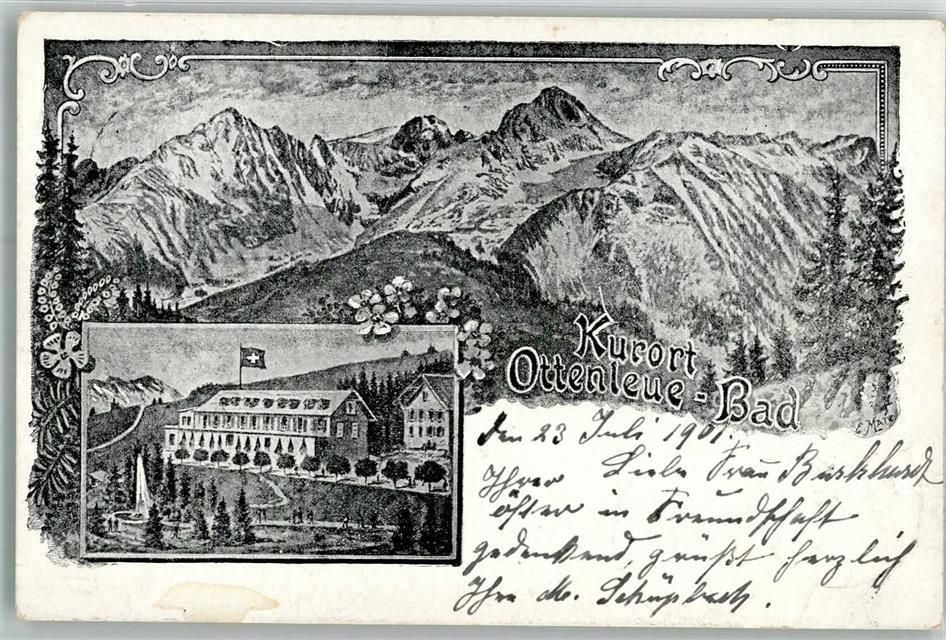 Kurort
Ottenleue-Bad
den 23 Juli 1901.
Liebe Frau Burkhardt
Ihrer
öfter in Freundschaft
gedenkend, grüßt herzlich
Ihre M. Schüpbach.